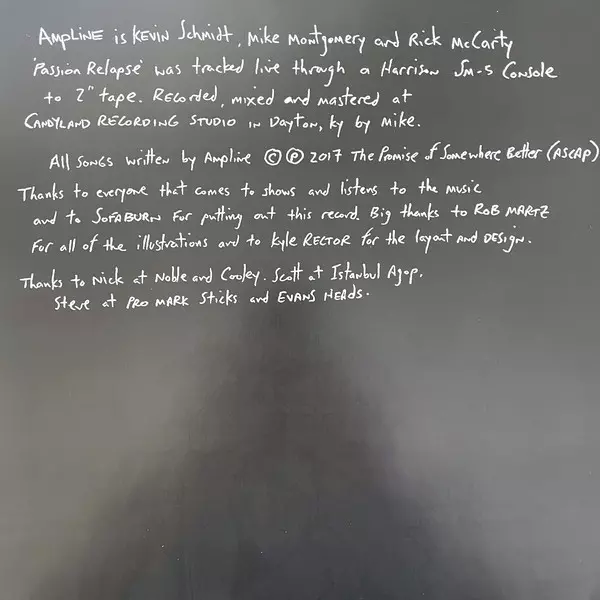 AMPLINE is KEVIN Schmidt, Mike Montgomery and Rick McCarty
'Passion Relapse' was tracked live through a Harrison SM-5 Console
to 2" tape. Recorded, mixed and mastered at
CANDYLAND RECORDING STUDIO in Dayton, Ky by Mike.
All SONGS written by Ampline © ℗ 2017 The Promise of Somewhere Better (ASCAP)
Thanks to everyone that comes to shows and listens to the music
and to SOFABURN for putting out this record. Big thanks to ROB MARTZ
for all of the illustrations and to Kyle RECTOR for the layout AND DESIGN.
Thanks to Nick at Noble and Cooley. Scott at Istanbul Agop.
Steve at PRO MARK Sticks and EVANS HEADS.